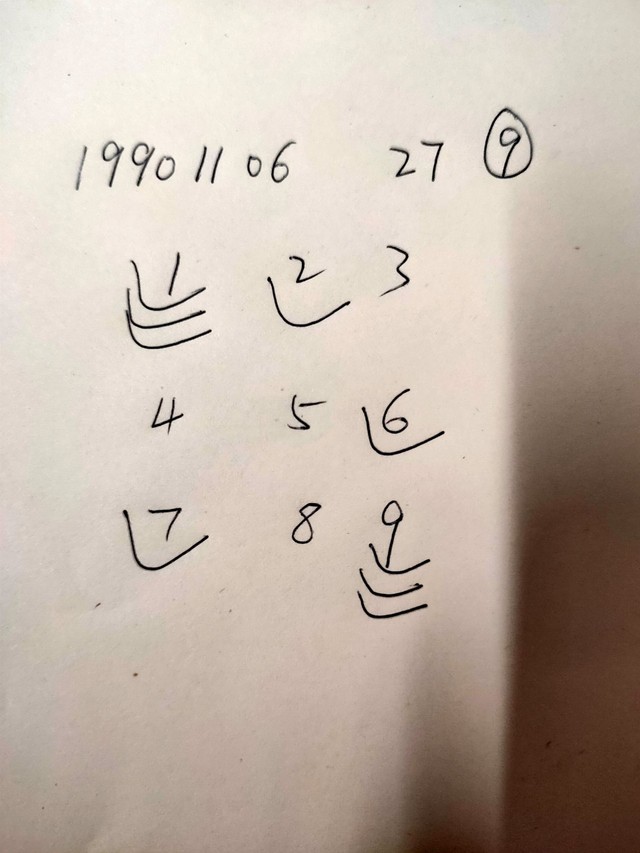 19901106 27 9
1 2 3
4 5 6
7 8 9